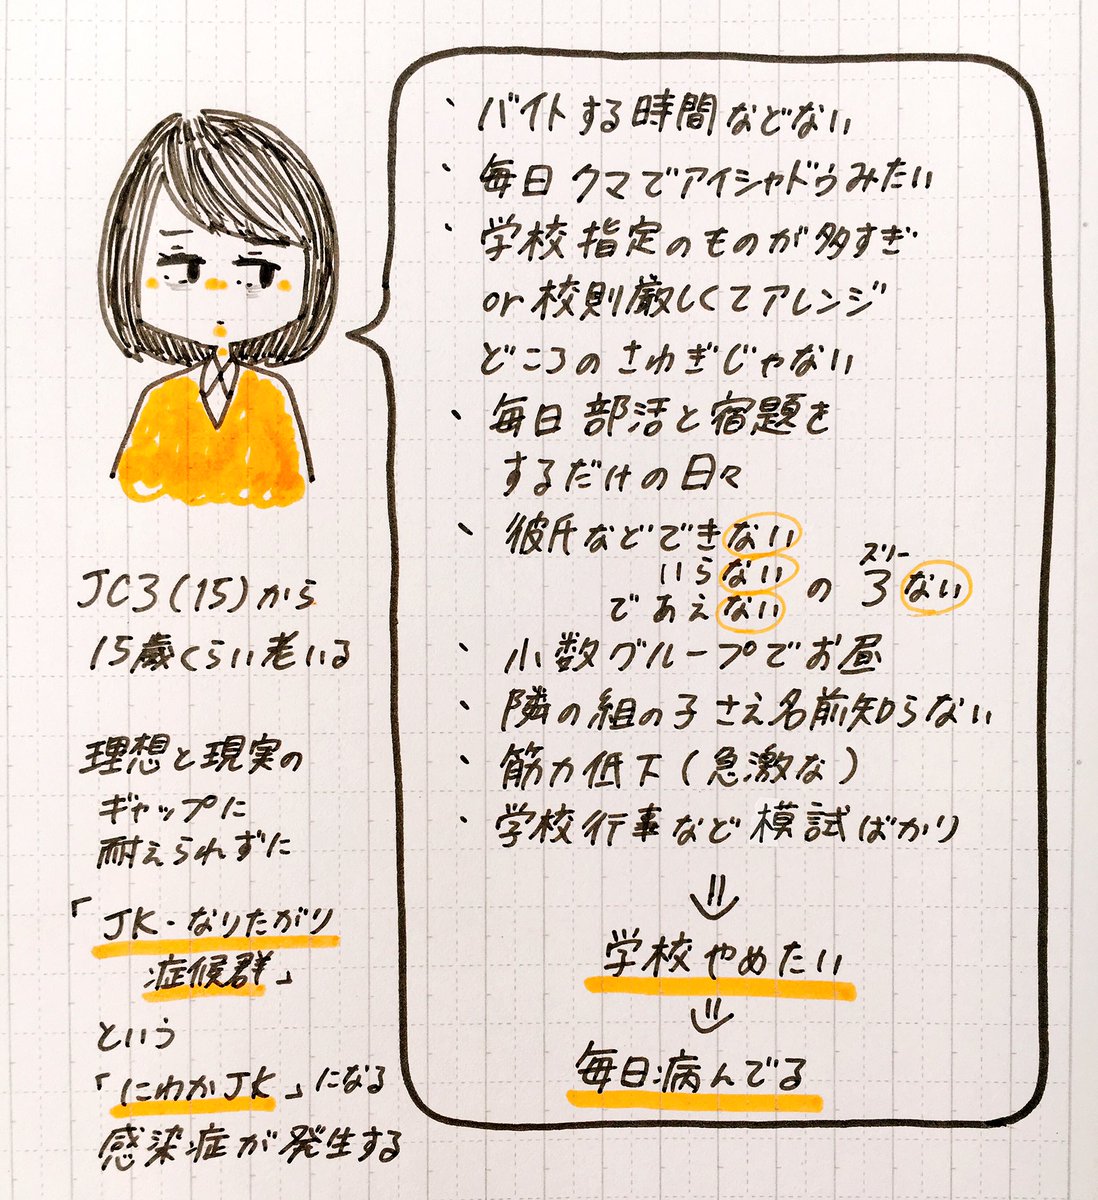 ・バイトする時間などない
・毎日クマでアイシャドウみたい
・学校指定のものが多すぎ
or校則厳しくてアレンジ
どころのさわぎじゃない
・毎日部活と宿題を
するだけの日々
・彼氏などできない
いらない
であえない
の
ズリー
3ない
・小数グループでお昼
・隣の組の子さえ名前知らない
・筋力低下(急激な)
・学校行事など模試ばかり
⇓
学校やめたい
⇓
毎日病んでる
JC3(15)から
15歳くらい老いる
理想と現実の
ギャップに
耐えられずに
「JK・なりたがり
症候群」
という
「にわかJK」になる
感染症が発生する